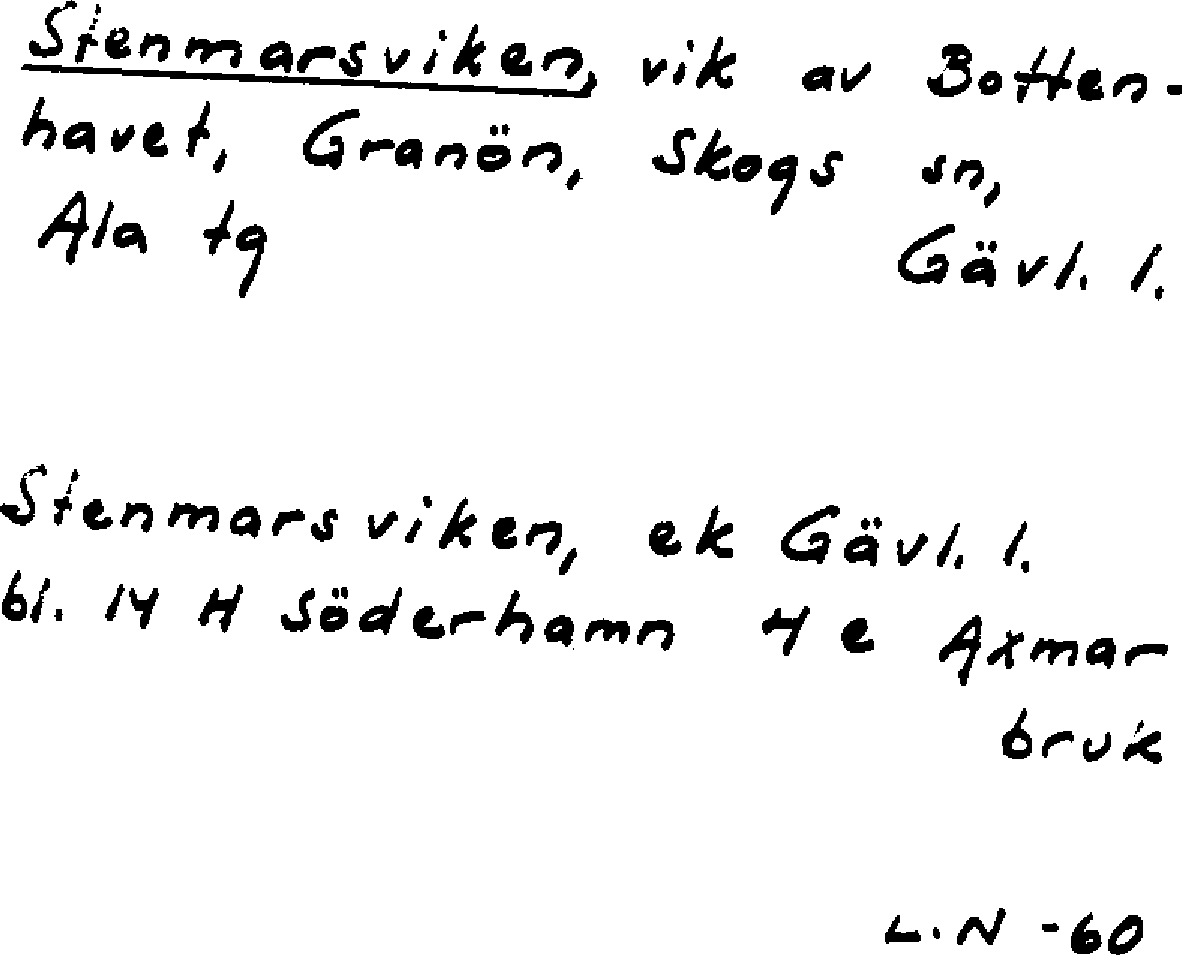 Stenmarsviken, vik av Botten-
havet, Granön, Skogs sn,
Ala tg Gävl. l.
Stenmarsviken, ek Gävl. l.
bl. 14 H Söderhamn 4 e Axmar
bruk
L.N -60